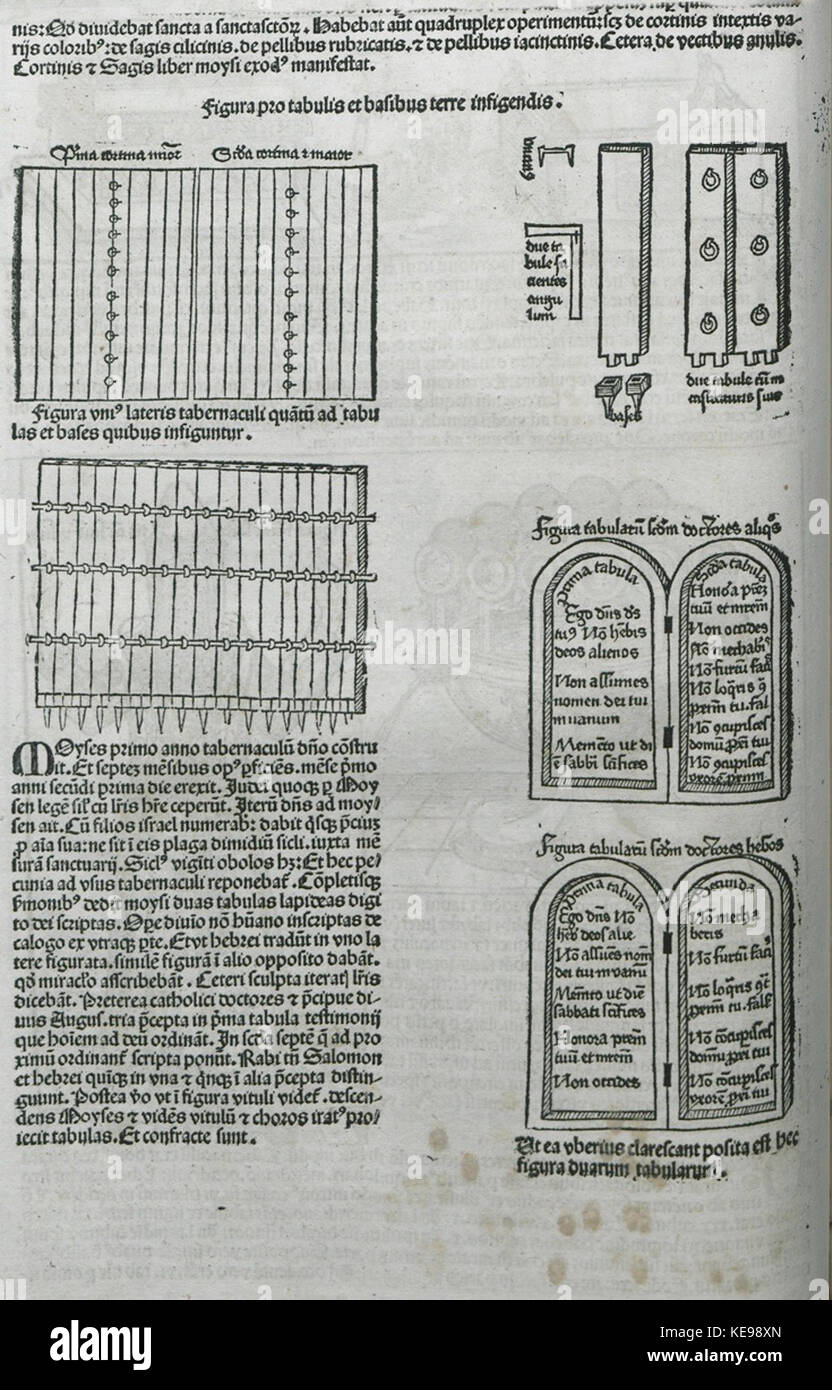 nis: Qd diuidebat sancta a sanctasctoꝝ. Habebat aūt quadruplex operimentū: scꝫ de cortinis intextis va-
rijs coloribꝰ: de sagis cilicinis. de pellibus rubricatis. ⁊ de pellibus iacinctinis. Cetera de vectibus anulis.
Cortinis ⁊ Sagis liber moysi exodꝰ manifestat.
Figura pro tabulis et basibus terre infigendis.
Pma cortina mīor
Scďa cortina ⁊ maior
Figura vniꝰ lateris tabernaculi quātū ad tabu
las et bases quibus infiguntur.
due ta
bule fa
cientes
angu
lum
bases
due tabule cum
Moyses primo anno tabernaculū dño cōstru
it. Et septeꝫ mēsibus opꝰ pficiēs. mēse pmo
anni secūdi prima die erexit. Judei quoqꝫ p Moy
sen legē sil' cū lr̄is hr̄e ceperūt. Iterū dñs ad moy/
sen ait. Cū filios israel numerabꝭ: dabit qsqꝫ pciuꝫ
p aīa sua: ne sit ī eis plaga dimidiū sicli. iuxta mē
surā sanctuarij. Siclꝰ vigīti obolos hꝫ: Et hec pe/
cunia ad vsus tabernaculi reponebat̄. Cōpletisqꝫ
fmonibꝰ dedit moysi duas tabulas lapideas digi
to dei scriptas. Ope diuīo nō hūano inscriptas de
calogo ex vtraqꝫ pte. Et vt hebrei tradūt in vno la
tere figurata. similē figurā ī alio opposito dabāt.
qď miraclo ascribebāt. Ceteri sculpta iterat lr̄is
dicebāt. Preterea catholici doctores ⁊ pcipue di-
uus Augus. tria pcepta in pma tabula testimonij
que hoīem ad deū ordināt. In scďa septē q ad pro
ximū ordinant̄ scripta ponūt. Rabi tn̄ Salomon
et hebrei quīqꝫ in vna ⁊ qnqꝫ ī alia pcepta distin-
guunt. Postea v̄o vt ī figura vituli videt̄. descen-
dens Moyses ⁊ vidēs vitulū ⁊ choros iratꝰ pro/
iecit tabulas. Et confracte sunt.
Figura tabularū scďm doctores aliqs
Prima tabula
Ego dñs ds
tuꝰ Nō hēbis
deos alienos
Non assumes
nomen dei tui
in vanum
Memēto vt di
ē sabbi scīfices
Scďa tabula
Honora prēꝫ
tuū et mrēm
Non occides
Nō mechabꝭ
Nō furtū faċ
Nō loqris ꝯ
prīm tu. fal
Nō ꝯcupisces
domū prī tui
Nō ꝯcupisces
vxorē prīm
Figura tabularū scďm doctores hebos
Prima tabula
Ego dñs Nō
hēb deos alie
Nō assūes nom
dei tui in vanū
Memēto vt diē
sabbati scīfices
Honora prēm
tuū et mrēm
Non occides
Secunda
Nō mecha
beris
Nō furtū faċ
Nō loqris ꝯt
prīm tu. fals
Nō cōcupisces
domū prī tui
Nō cōcupisces
vxorē prī tui
Ut ea vberius clarescant posita est hec
figura duarum tabularum.
alamy
alamy stock photo
KE98XN
www.alamy.com